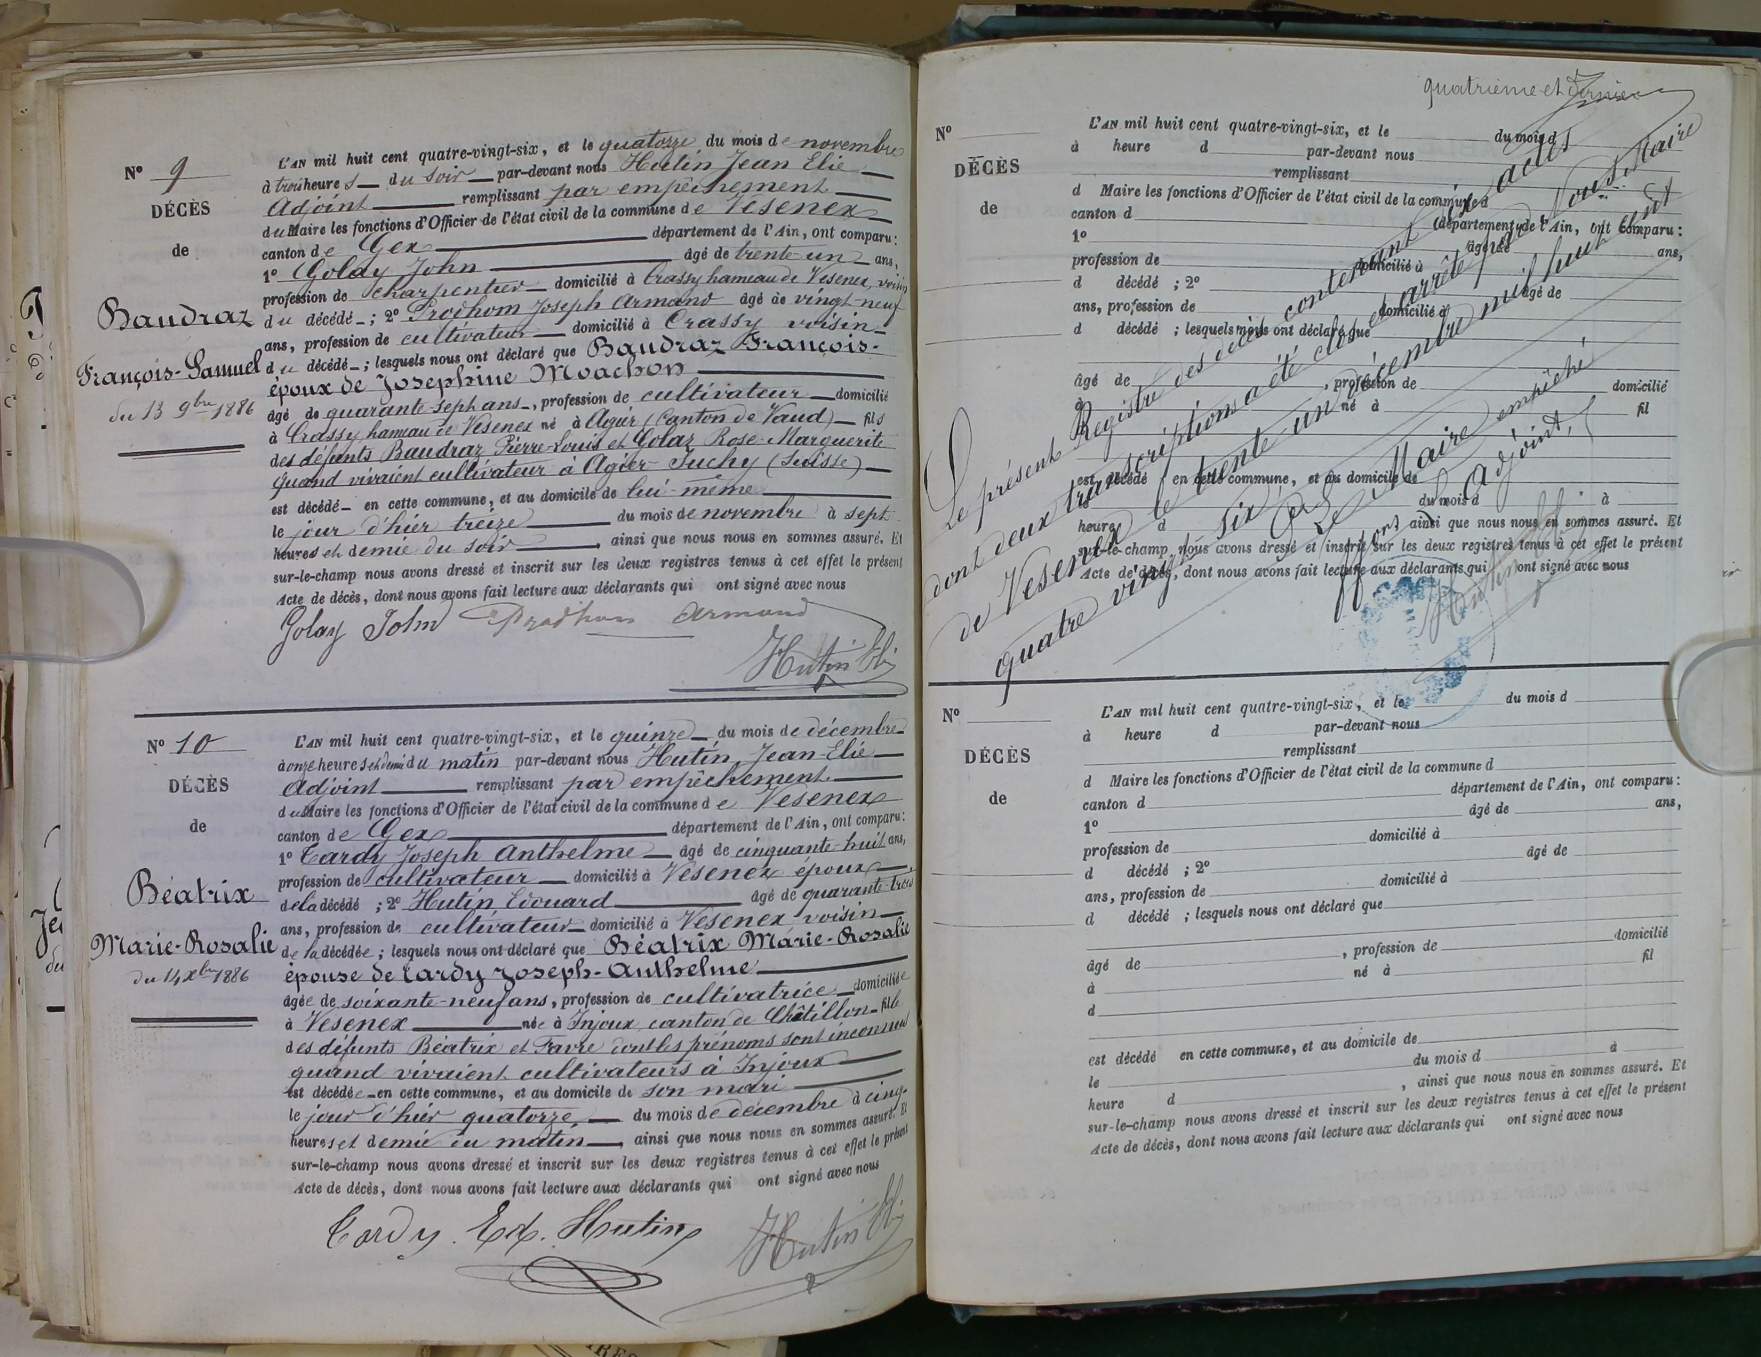 N° 9
DÉCÈS
de
Baudraz
François-Samuel
du 13 9bre 1886
L'AN mil huit cent quatre-vingt-six, et le quatorze du mois de novembre
à trois heures du soir par-devant nous Hutin Jean Elie
Adjoint remplissant par empêchement
du Maire les fonctions d'Officier de l'état civil de la commune de Vesenex
canton de Gex département de l'Ain, ont comparu:
1° Golay John âgé de trente-un ans,
profession de charpentier domicilié à Crassy hameau de Vesenex, voisin
du décédé; 2° Prodhom Joseph Armand âgé de vingt-neuf
ans, profession de cultivateur domicilié à Crassy voisin
du décédé; lesquels nous ont déclaré que Baudraz François-
époux de Josephine Moachon
âgé de quarante-sept ans, profession de cultivateur domicilié
à Crassy hameau de Vesenex né à Agier (Canton de Vaud) fils
des défunts Baudraz Pierre-Louis et Golaz Rose-Marguerite
quand vivaient cultivateur à Agier-Suchy (Suisse)
est décédé en cette commune, et au domicile de lui-même
le jour d'hier treize du mois de novembre à sept
heures et demie du soir, ainsi que nous nous en sommes assuré. Et
sur-le-champ nous avons dressé et inscrit sur les deux registres tenus à cet effet le présent
Acte de décès, dont nous avons fait lecture aux déclarants qui ont signé avec nous
Golay John Prodhom Armand
Hutin Eli
N° 10
DÉCÈS
de
Béatrix
Marie-Rosalie
du 14 Xbre 1886
L'AN mil huit cent quatre-vingt-six, et le quinze du mois de décembre
à onze heures et demi du matin par-devant nous Hutin Jean-Elie
Adjoint remplissant par empêchement
du Maire les fonctions d'Officier de l'état civil de la commune de Vesenex
canton de Gex département de l'Ain, ont comparu:
1° Tardy Joseph Anthelme âgé de cinquante-huit ans,
profession de cultivateur domicilié à Vesenex époux
de la décédé; 2° Hutin Edouard âgé de quarante-trois
ans, profession de cultivateur domicilié à Vesenex voisin
de la décédée; lesquels nous ont déclaré que Béatrix Marie-Rosalie
épouse de Tardy Joseph-Anthelme
âgée de soixante-neuf ans, profession de cultivatrice domiciliée
à Vesenex née à Injoux canton de Châtillon fille
des défunts Béatrix et Favre dont les prénoms sont inconnus
quand vivaient cultivateurs à Injoux
est décédée en cette commune, et au domicile de son mari
le jour d'hier quatorze du mois de décembre à cinq
heures et demie du matin, ainsi que nous nous en sommes assuré. Et
sur-le-champ nous avons dressé et inscrit sur les deux registres tenus à cet effet le présent
Acte de décès, dont nous avons fait lecture aux déclarants qui ont signé avec nous
Tardy. Ed. Hutin
Hutin Eli
quatrième et dernier
N°
DÉCÈS
de
L'AN mil huit cent quatre-vingt-six, et le du mois d
à heure d par-devant nous
remplissant
d Maire les fonctions d'Officier de l'état civil de la commune d
canton d département de l'Ain, ont comparu:
1° âgé de ans,
profession de domicilié à
d décédé; 2° âgé de
ans, profession de domicilié à
d décédé; lesquels nous ont déclaré que
âgé de, profession de domicilié
à né à fil
est décédé en cette commune, et au domicile de
le du mois d à
heure d ainsi que nous nous en sommes assuré. Et
sur-le-champ nous avons dressé et inscrit sur les deux registres tenus à cet effet le présent
Acte de décès, dont nous avons fait lecture aux déclarants qui ont signé avec nous
Le présent Registre des décès contenant dix actes
dont deux transcriptions a été clos et arrêté par Nous Maire
de Vesenex le trente un décembre mil huit cent
quatre vingt six.
Le Maire empêché
L'adjoint,
Hutin
N°
DÉCÈS
de
L'AN mil huit cent quatre-vingt-six, et le du mois d
à heure d par-devant nous
remplissant
d Maire les fonctions d'Officier de l'état civil de la commune d
canton d département de l'Ain, ont comparu:
1° âgé de ans,
profession de domicilié à
d décédé; 2° âgé de
ans, profession de domicilié à
d décédé; lesquels nous ont déclaré que
âgé de, profession de domicilié
à né à fil
d
est décédé en cette commune, et au domicile de
le du mois d à
heure d, ainsi que nous nous en sommes assuré. Et
sur-le-champ nous avons dressé et inscrit sur les deux registres tenus à cet effet le présent
Acte de décès, dont nous avons fait lecture aux déclarants qui ont signé avec nous